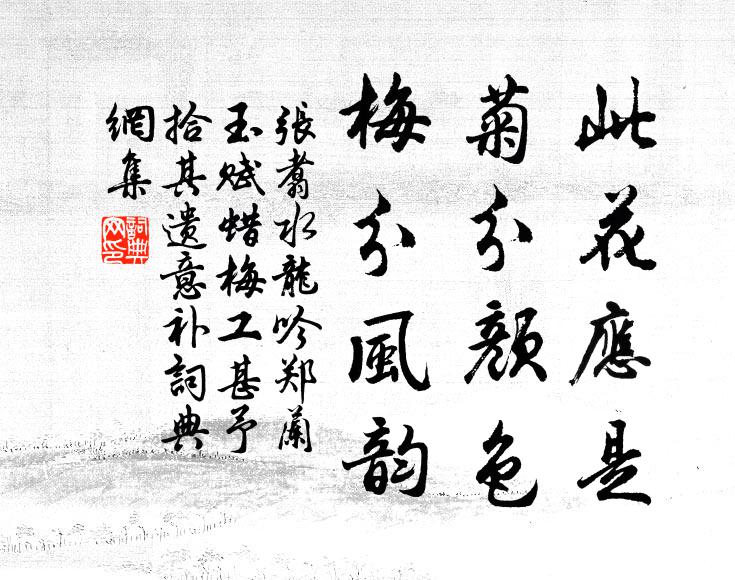 此花應是
菊分顏色
梅分風韵
張翥水龍吟郑蘭
玉赋蜡梅工甚予
拾其遺意补詞典
網集
詞典
网印